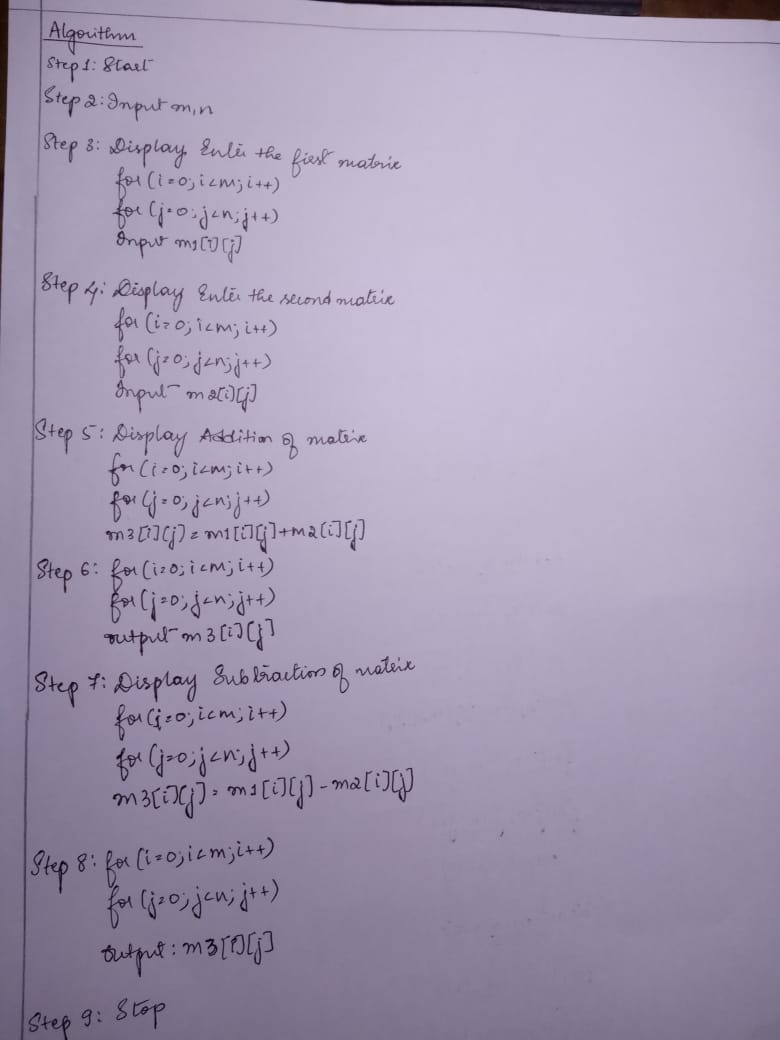 Algorithm
Step 1: Start
Step 2: Input m,n
Step 3: Display Enter the first matrix
for (i=0; i<m; i++)
for (j=0; j<n; j++)
Input m1[i][j]
Step 4: Display Enter the second matrix
for (i=0; i<m; i++)
for (j=0; j<n; j++)
Input m2[i][j]
Step 5: Display Addition of matrix
for (i=0; i<m; i++)
for (j=0; j<n; j++)
m3[i][j] = m1[i][j]+m2[i][j]
Step 6: for (i=0; i<m; i++)
for (j=0; j<n; j++)
output m3[i][j]
Step 7: Display Subtraction of matrix
for (i=0; i<m; i++)
for (j=0; j<n; j++)
m3[i][j] = m1[i][j] - m2[i][j]
Step 8: for (i=0; i<m; i++)
for (j=0; j<n; j++)
output: m3[i][j]
Step 9: Stop